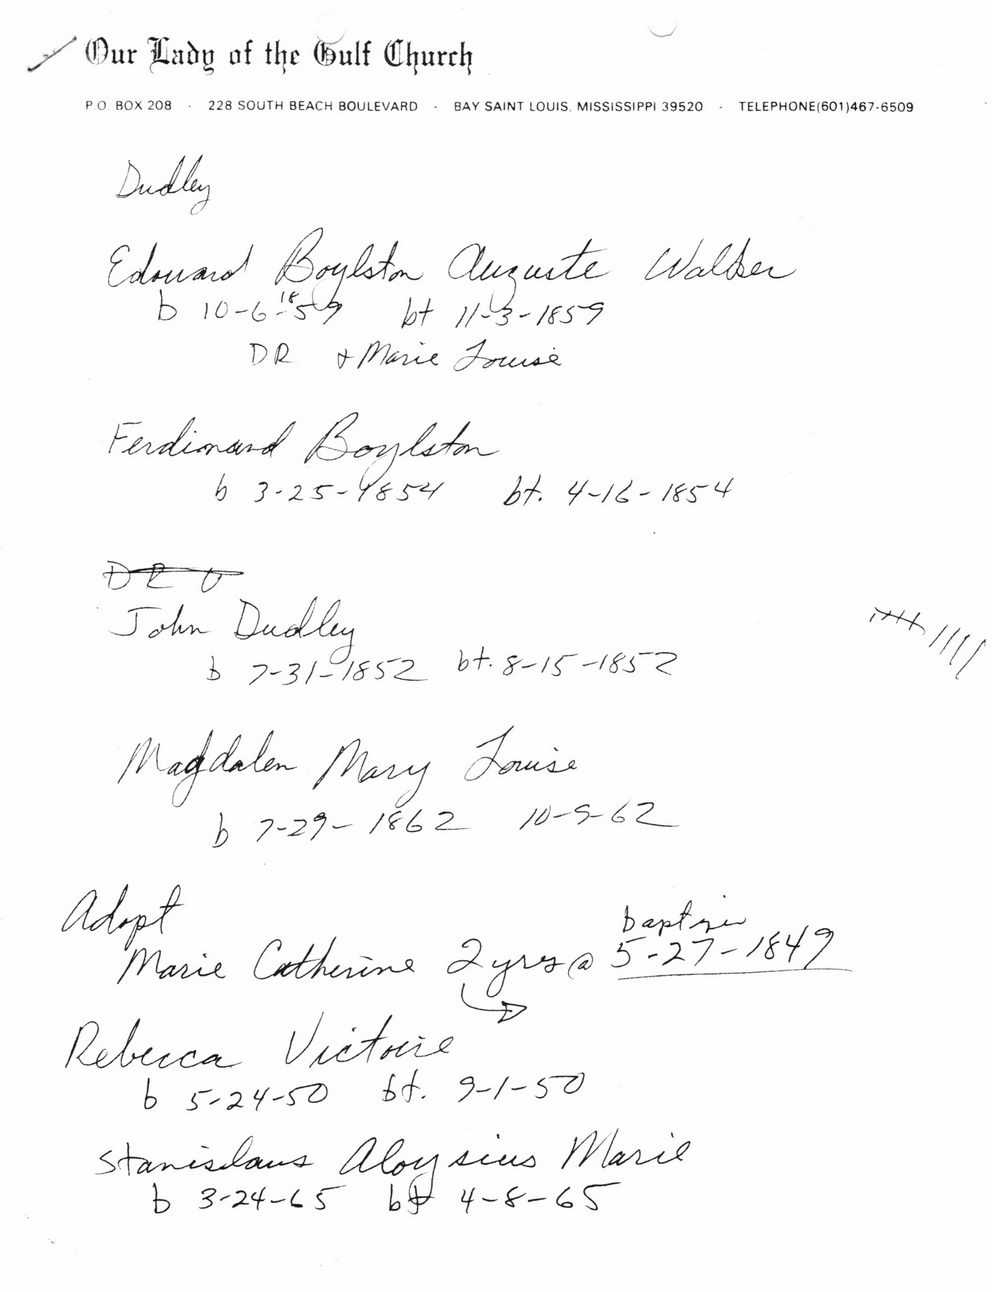 Our Lady of the Gulf Church
P.O. BOX 208 - 228 SOUTH BEACH BOULEVARD - BAY SAINT LOUIS, MISSISSIPPI 39520 - TELEPHONE(601)467-6509
Dudley
Edouard Boylston Auguste Walker
b 10-6-1859 bt 11-3-1859
DR + Marie Louise
Ferdinand Boylston
b 3-25-1854 bt. 4-16-1854
D R
John Dudley
b 7-31-1852 bt. 8-15-1852
Magdalen Mary Louise
b 7-29-1862 10-5-62
Adopt
baptize
Marie Catherine 2 yrs @ 5-27-1849
Rebecca Victoire
b 5-24-50 bt. 9-1-50
Stanislaus Aloysius Marie
b 3-24-65 bt 4-8-65